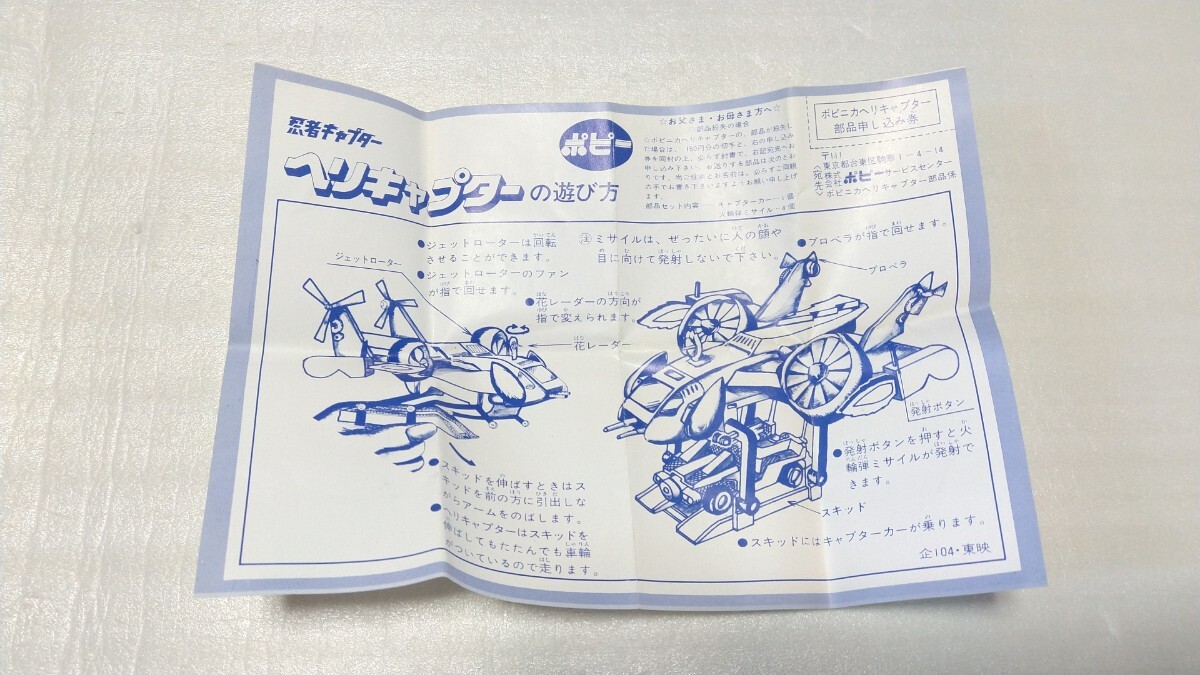 忍者キャプター
ヘリキャプターの遊び方
ポピー
☆お父さま・お母さま方へ☆
部品紛失の場合
☆ポピニカヘリキャプターの、部品が紛失し
た場合は、160円分の切手と、右の申し込み
券を同封の上、必らず封書で、右記宛先へお
申し込み下さい。お送りする部品は次のとお
りです。尚ご住所とお名前は、必らずご後
ます。
部品セット内容……キャプターカー…1個
火輪弾ミサイル…4個
ポピニカヘリキャプター
部品申し込み券
〒111
東京都台東区駒形1-4-14
宛先
株式会社ポピーサービスセンター
ポピニカヘリキャプター部品係
●ジェットローターは回転
させることができます。
●ジェットローターのファン
が指で回せます。
ジェットローター
㊟ミサイルは、ぜったいに人の顔や
目に向けて発射しないで下さい。
●花レーダーの方向が
指で変えられます。
花レーダー
●プロペラが指で回せます。
プロペラ
発射ボタン
●発射ボタンを押すと火
輪弾ミサイルが発射で
きます。
スキッド
●スキッドにはキャプターカーが乗ります。
●スキッドを伸ばすときはス
キッドを前の方に引出しな
がらアームをのばします。
●ヘリキャプターはスキッドを
伸ばしてもたたんでも車輪
がついているので走ります。
企104・東映